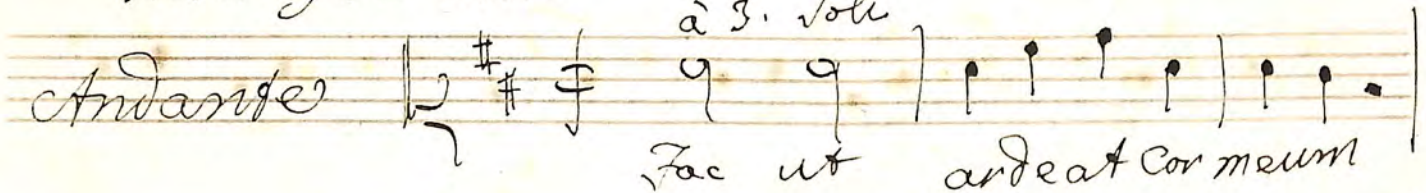 à 3. Soli
Andante
Fac ut ardeat Cor meum